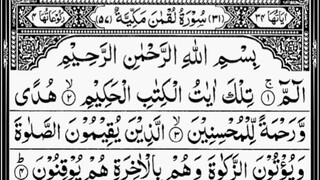 اٰيَاتُهَا ٣٤ (٣١) سُوْرَةُ لُقْمٰنَ مَكِّيَّةٌ (٥٧) رُكُوْعَاتُهَا ٤
بِسْمِ اللّٰهِ الرَّحْمٰنِ الرَّحِيْمِ
الٓمّٓ ۚ﴿١﴾ تِلْكَ اٰيٰتُ الْكِتٰبِ الْحَكِيْمِ ۙ﴿٢﴾ هُدًى
وَّ رَحْمَةً لِّلْمُحْسِنِيْنَ ۙ﴿٣﴾ الَّذِيْنَ يُقِيْمُوْنَ الصَّلٰوةَ
وَ يُؤْتُوْنَ الزَّكٰوةَ وَ هُمْ بِالْاٰخِرَةِ هُمْ يُوْقِنُوْنَ ؕ﴿٤﴾